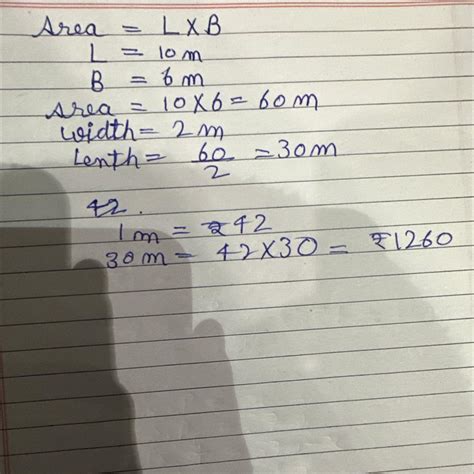 Area = L X B
L = 10 m
B = 6 m
Area = 10 X 6 = 60 m
width = 2 m
Lenth = 60/2 = 30 m
42.
1 m = ₹ 42
30 m = 42 X 30 = ₹1260